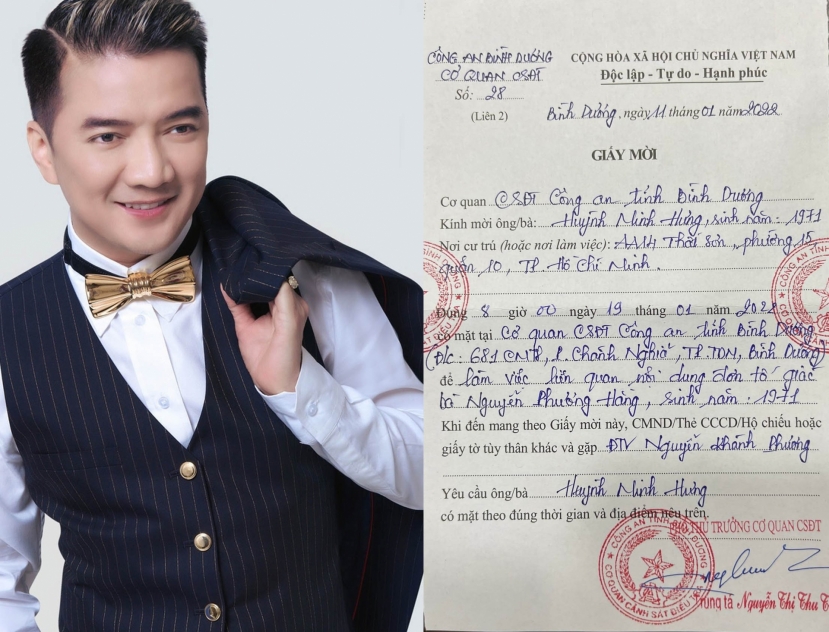 CÔNG AN BÌNH DƯƠNG
CƠ QUAN CSĐT
Số: 28
(Liên 2)
CỘNG HÒA XÃ HỘI CHỦ NGHĨA VIỆT NAM
Độc lập - Tự do - Hạnh phúc
Bình Dương, ngày 11 tháng 01 năm 2022
GIẤY MỜI
Cơ quan CSĐT Công an tỉnh Bình Dương
Kính mời ông/bà: Huỳnh Minh Hưng, sinh năm: 1971
Nơi cư trú (hoặc nơi làm việc): Thái Sơn, phường 15
quận 10, TP. Hồ Chí Minh.
Đúng 8 giờ 00 ngày 19 tháng 01 năm 2022
có mặt tại Cơ quan CSĐT Công an tỉnh Bình Dương
(Đ/c: 681 CMT8, P. Chánh Nghĩa, TP. TDM, Bình Dương)
để làm việc liên quan nội dung đơn tố giác
bà Nguyễn Phương Hằng, sinh năm: 1971
Khi đến mang theo Giấy mời này, CMND/Thẻ CCCD/Hộ chiếu hoặc
giấy tờ tùy thân khác và gặp ĐTV Nguyễn Khánh Phương
Yêu cầu ông/bà Huỳnh Minh Hưng
có mặt theo đúng thời gian và địa điểm nêu trên.
PHÓ THỦ TRƯỞNG CƠ QUAN CSĐT
CÔNG AN TỈNH BÌNH DƯƠNG
CƠ QUAN CẢNH SÁT ĐIỀU
Trung tá Nguyễn Thị Thu